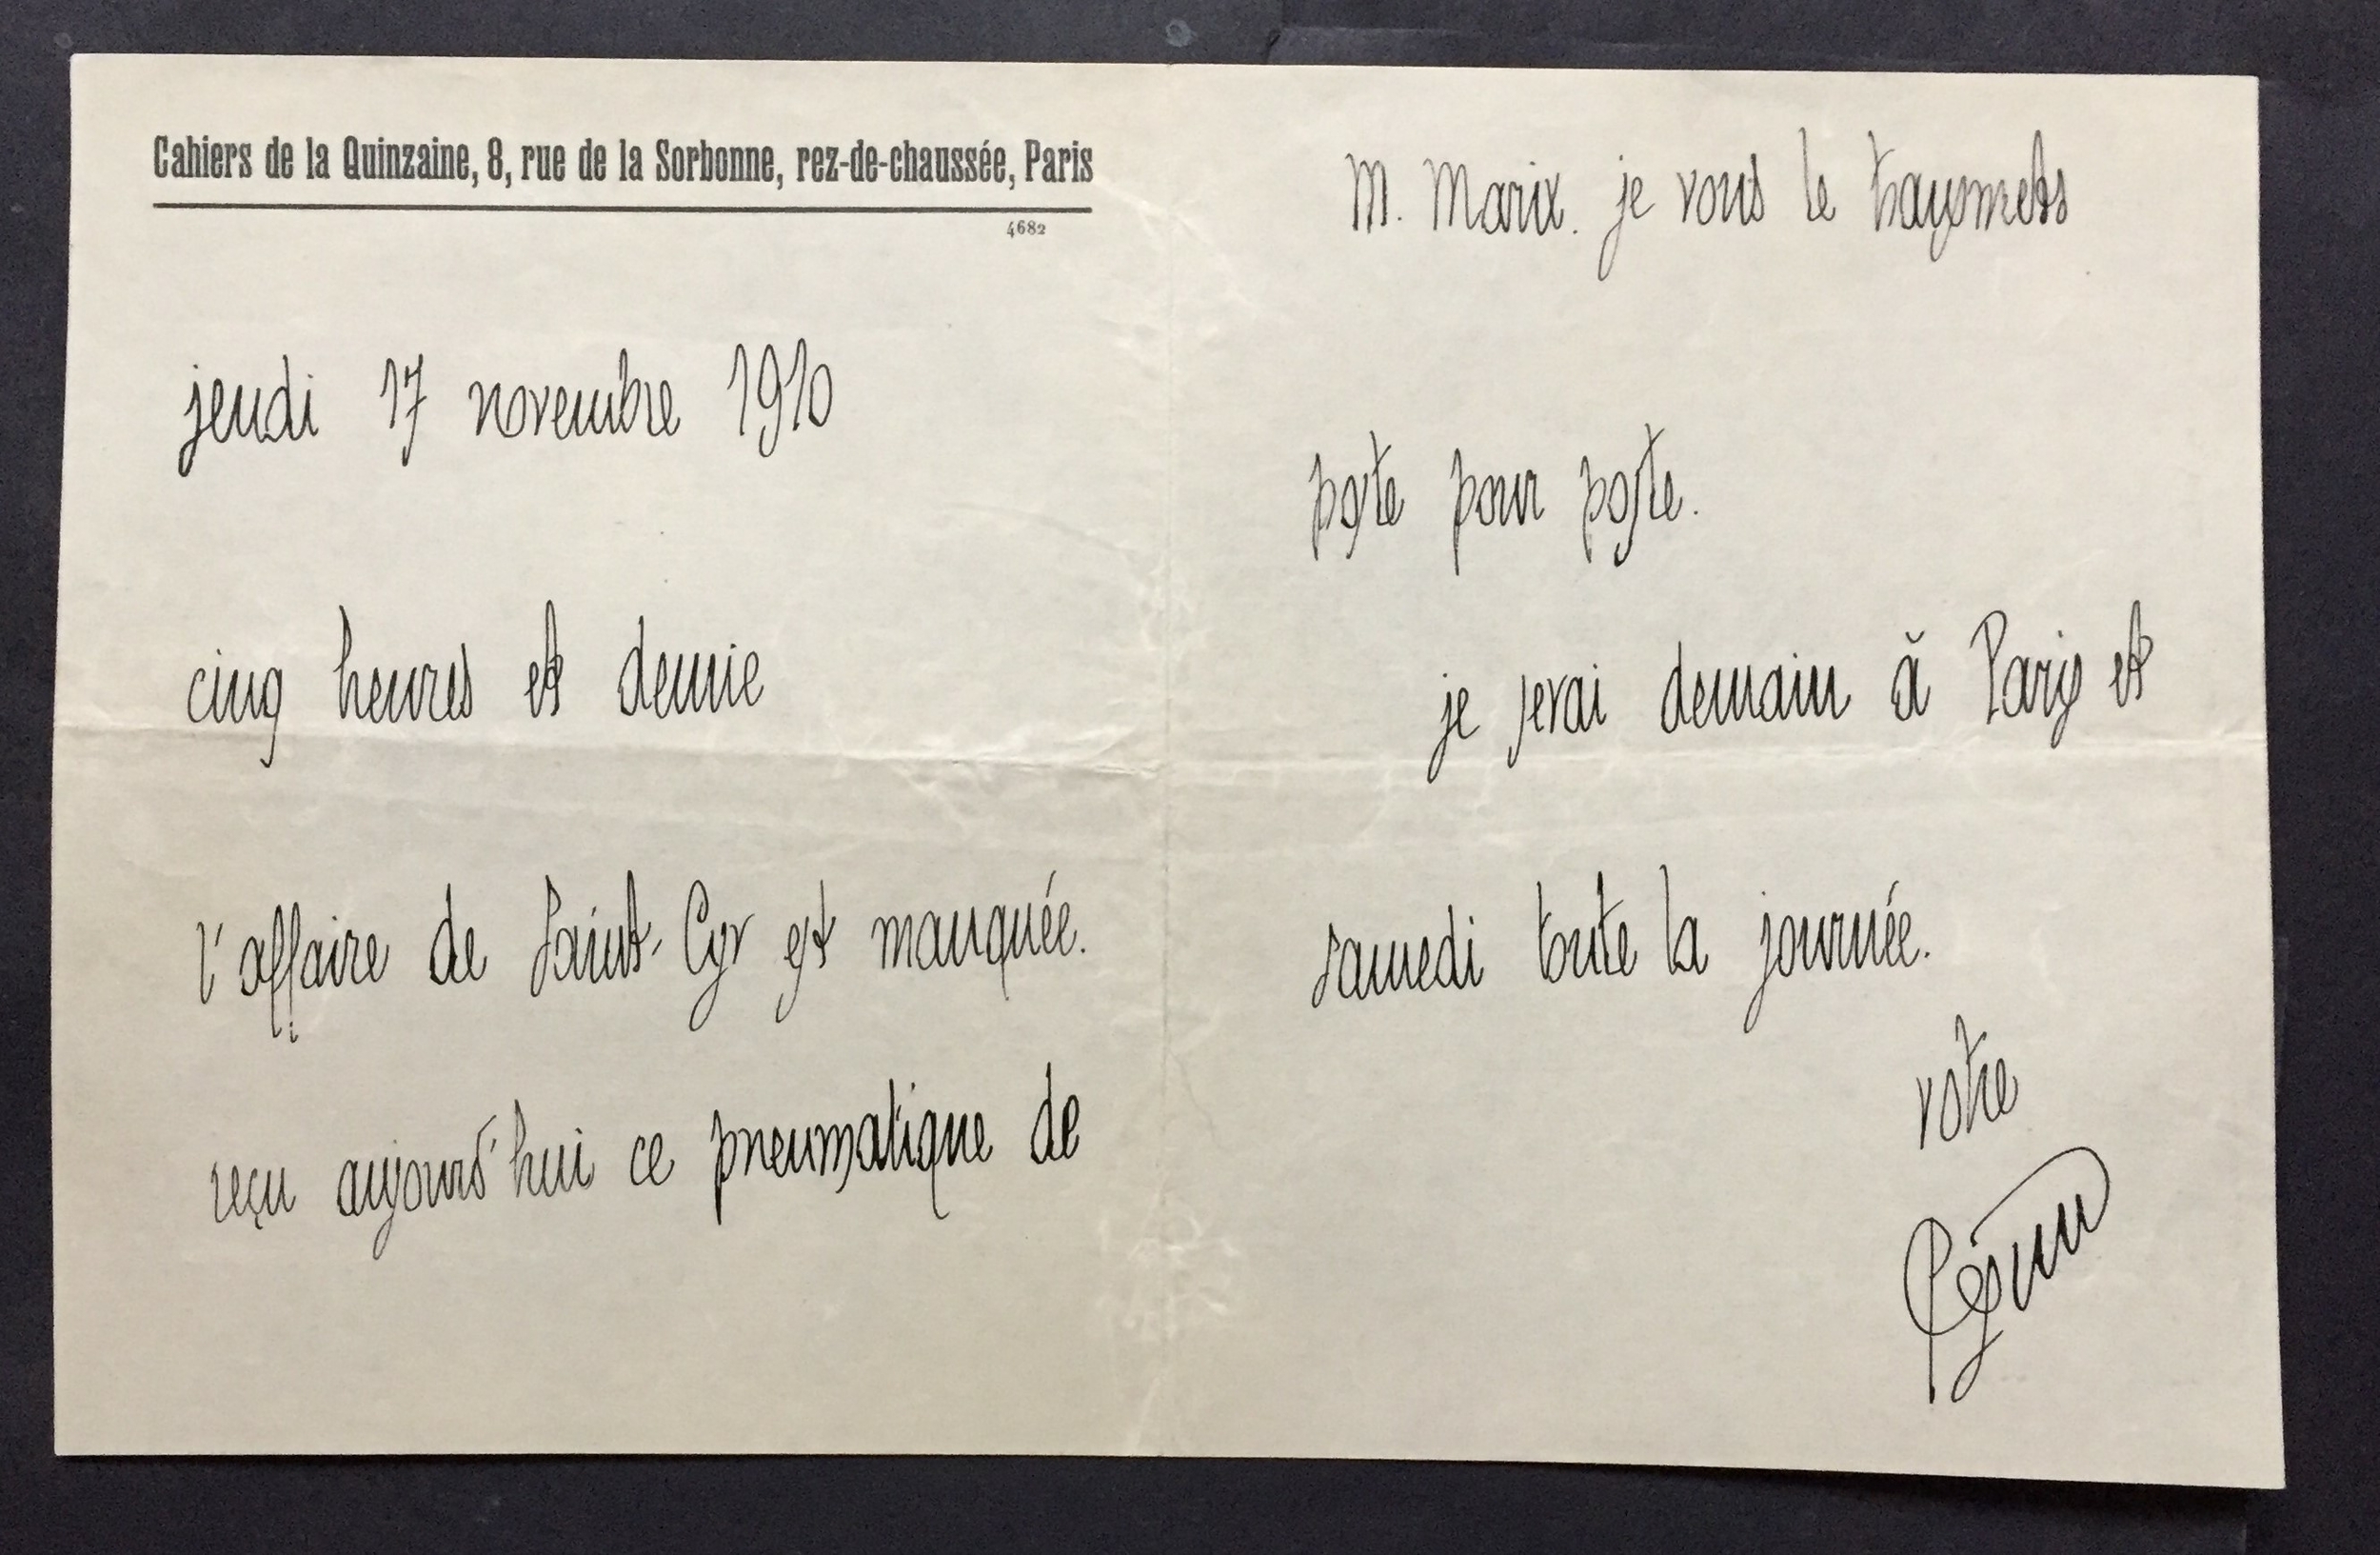 Cahiers de la Quinzaine, 8, rue de la Sorbonne, rez-de-chaussée, Paris
4682
jeudi 17 novembre 1910
cinq heures et demie
l'affaire de Saint-Cyr est manquée.
reçu aujourd'hui ce pneumatique de
M. Marix. je vous le transmets
poste pour poste.
je serai demain à Paris et
samedi toute la journée.
votre
Péguy